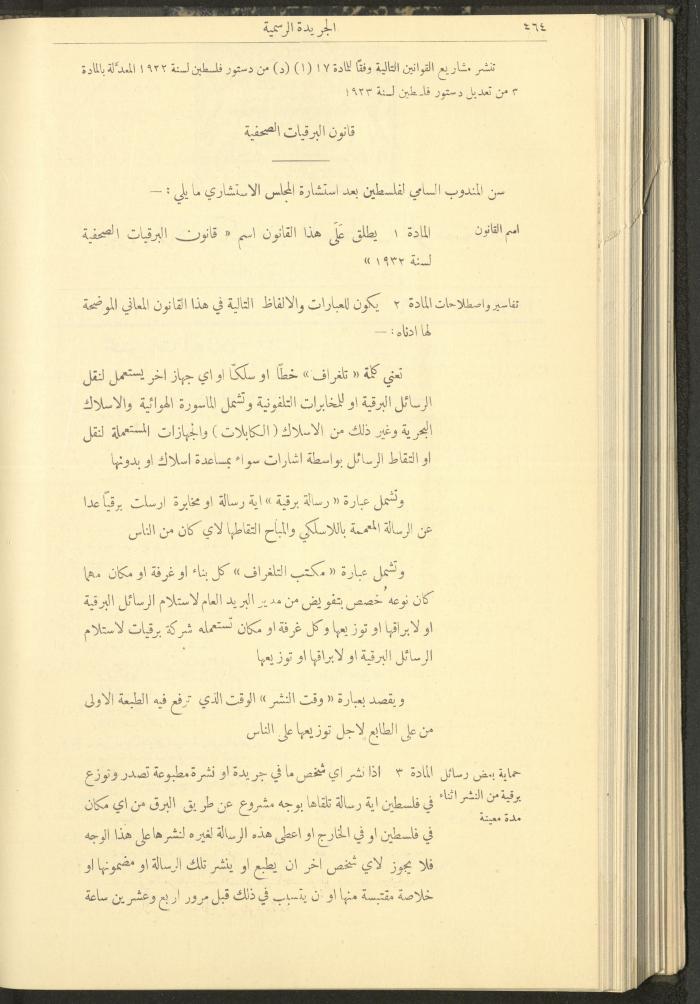 ٤٦٤
الجريدة الرسمية
تنشر مشاريع القوانين التالية وفقًا للمادة ١٧ (١) (د) من دستور فلسطين لسنة ١٩٢٢ المعدّلة بالمادة
٣ من تعديل دستور فلسطين لسنة ١٩٢٣
قانون البرقيات الصحفية
سن المندوب السامي لفلسطين بعد استشارة المجلس الاستشاري ما يلي : —
اسم القانون
المادة ١ يطلق عَلَى هذا القانون اسم « قانون البرقيات الصحفية
لسنة ١٩٣٢ »
تفاسير واصطلاحات
المادة ٢ يكون للعبارات والالفاظ التالية في هذا القانون المعاني الموضحة
لها ادناه : —
تعني كلمة « تلغراف » خطًا او سلكًا او اي جهاز اخر يستعمل لنقل
الرسائل البرقية او للمخابرات التلفونية وتشمل الماسورة الهوائية والاسلاك
البحرية وغير ذلك من الاسلاك ( الكابلات ) والجهازات المستعملة لنقل
او التقاط الرسائل بواسطة اشارات سواء بمساعدة اسلاك او بدونها
وتشمل عبارة « رسالة برقية » اية رسالة او مخابرة ارسلت برقيًا عدا
عن الرسالة المعممة باللاسلكي والمباح التقاطها لاي كان من الناس
وتشمل عبارة « مكتب التلغراف » كل بناء او غرفة او مكان مهما
كان نوعه خصص بتفويض من مدير البريد العام لاستلام الرسائل البرقية
او لابراقها او توزيعها وكل غرفة او مكان تستعمله شركة برقيات لاستلام
الرسائل البرقية او لابراقها او توزيعها
ويقصد بعبارة « وقت النشر » الوقت الذي ترفع فيه الطبعة الاولى
من على الطابع لاجل توزيعها على الناس
حماية بعض رسائل
برقية من النشر اثناء
مدة معينة
المادة ٣ اذا نشر اي شخص ما في جريدة او نشرة مطبوعة تصدر وتوزع
في فلسطين اية رسالة تلقاها بوجه مشروع عن طريق البرق من اي مكان
في فلسطين او في الخارج او اعطى هذه الرسالة لغيره لنشرها على هذا الوجه
فلا يجوز لاي شخص اخر ان يطبع او ينشر تلك الرسالة او مضمونها او
خلاصة مقتبسة منها او ان يتسبب في ذلك قبل مرور اربع وعشرين ساعة